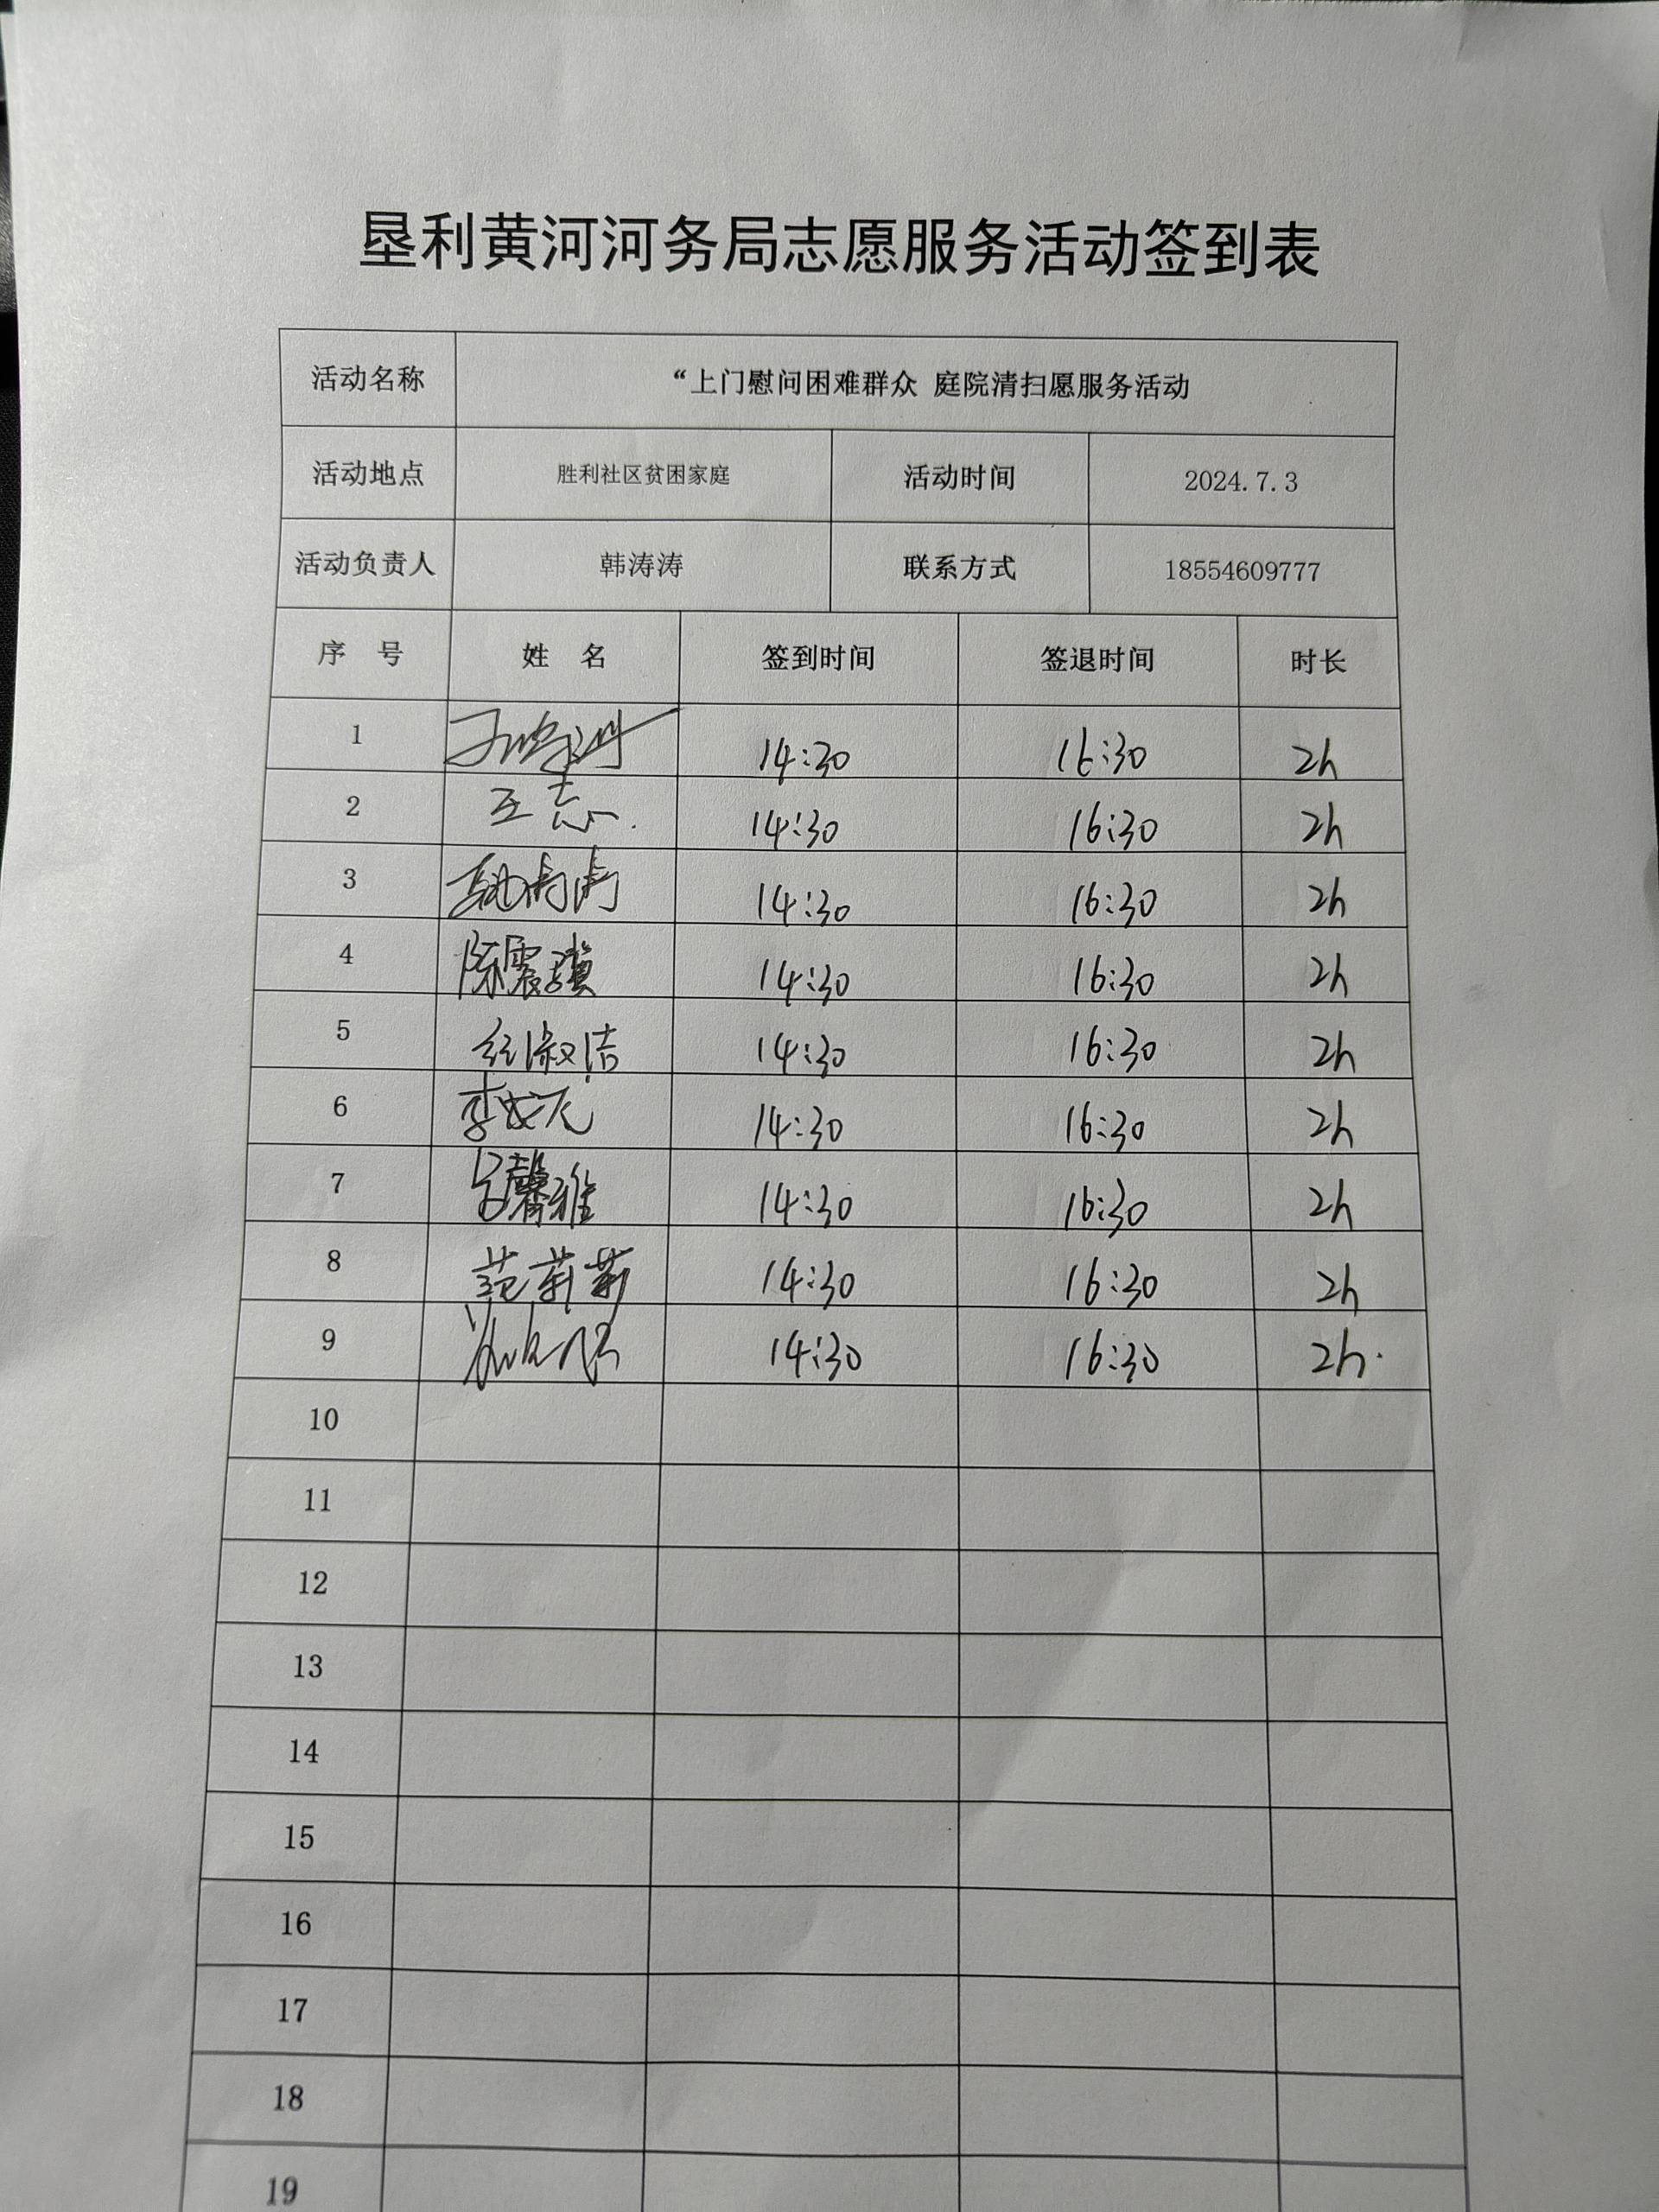 垦利黄河河务局志愿服务活动签到表
活动名称 “上门慰问困难群众 庭院清扫愿服务活动
活动地点 胜利社区贫困家庭 活动时间 2024.7.3
活动负责人 韩涛涛 联系方式 18554609777
序 号 姓 名 签到时间 签退时间 时长
1 14:30 16:30 2h
2 王志 14:30 16:30 2h
3 14:30 16:30 2h
4 陈震骥 14:30 16:30 2h
5 纪淑洁 14:30 16:30 2h
6 李 14:30 16:30 2h
7 馨雅 14:30 16:30 2h
8 范莉莉 14:30 16:30 2h
9 14:30 16:30 2h.
10
11
12
13
14
15
16
17
18
19